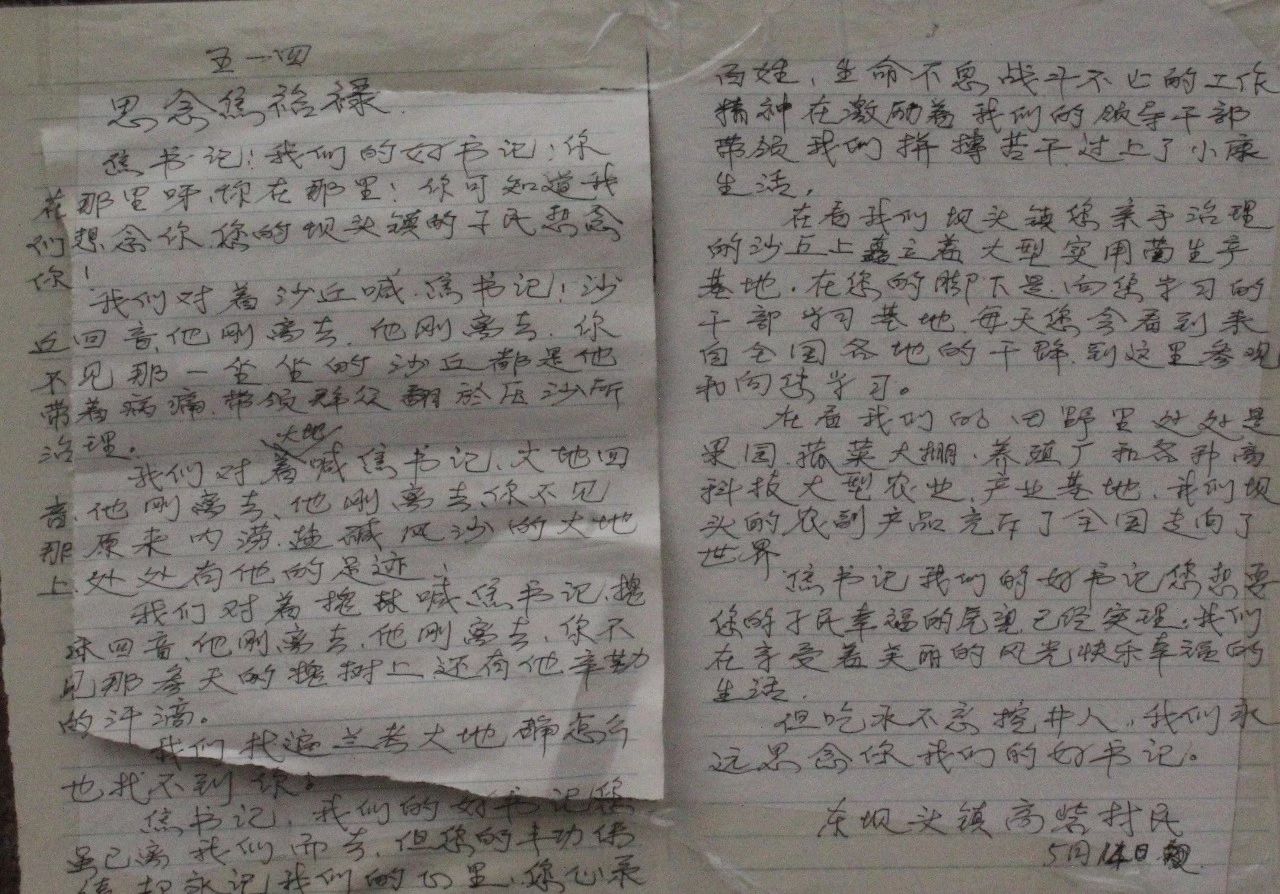 五一四
思念焦裕禄
焦书记!我们的好书记!你
在那里呀,你在那里!你可知道我
们想念你,您的坝头镇的子民想念
你!
我们对着沙丘喊,焦书记!沙
丘回音,他刚离去,他刚离去,你
不见那一坐坐的沙丘都是他
带着病痛,带领群众翻於压沙所
治理。
大地
我们对着喊焦书记,大地回
音,他刚离去,他刚离去,你不见
那原来内涝盐碱风沙的大地
上,处处有他的足迹,
我们对着槐林喊焦书记,槐
林回音,他刚离去,他刚离去,你不
见那参天的槐树上,还有他辛勤
的汗滴。
我们找遍兰考大地,
也找不到你。
焦书记,我们的好书记您
虽已离我们而去,但您的丰功伟
永记我们的心里,您心
百姓,生命不息战斗不止的工作
精神在激励着我们的领导干部
带领我们拼搏苦干,过上了小康
生活,
在看我们坝头镇您亲手治理
的沙丘上矗立着大型实用菌生产
基地,在您的脚下是向您学习的
干部学习基地,每天您会看到来
自全国各地的干群,到这里参观
和向您学习。
在看我们的田野里处处是
果园,蔬菜大棚,养殖厂和各种高
科技大型农业,产业基地,我们坝
头的农副产品充斥了全国走向了
世界
焦书记我们的好书记您想要
您的子民幸福的愿望已经实理,我们
在享受着美丽的风光快乐幸福的
生活,
但吃水不忘挖井人,我们永
远思念你我们的好书记。
东坝头镇高	村民
5月14日